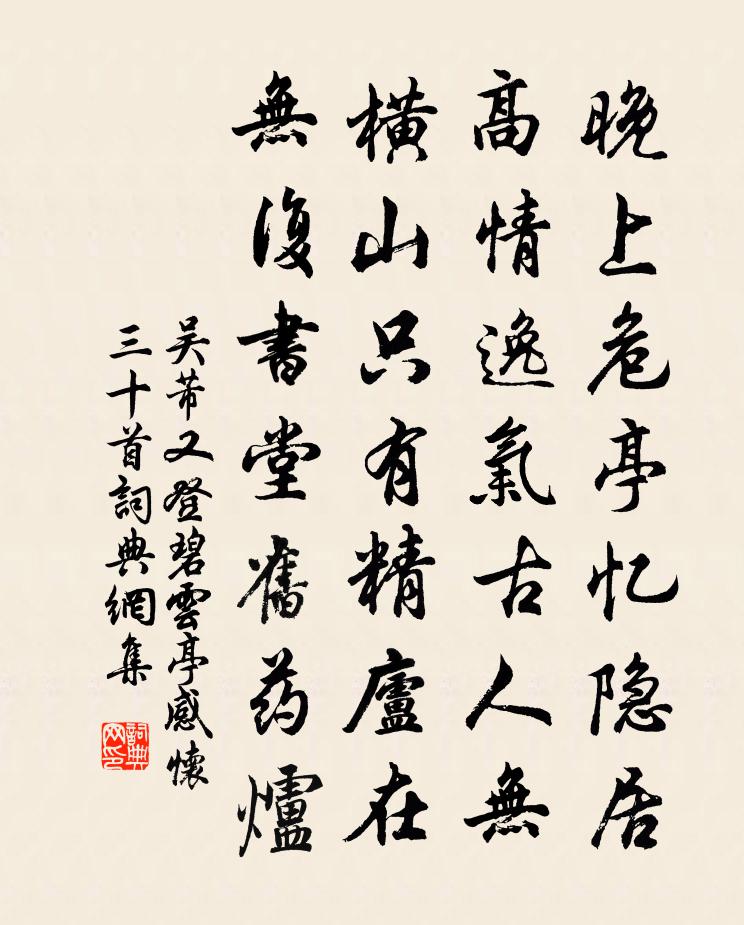 晚上危亭忆隐居
高情逸氣古人無
横山只有精廬在
無復書堂舊药爐
吴芾又登碧雲亭感懷
三十首詞典網集
詞典网印